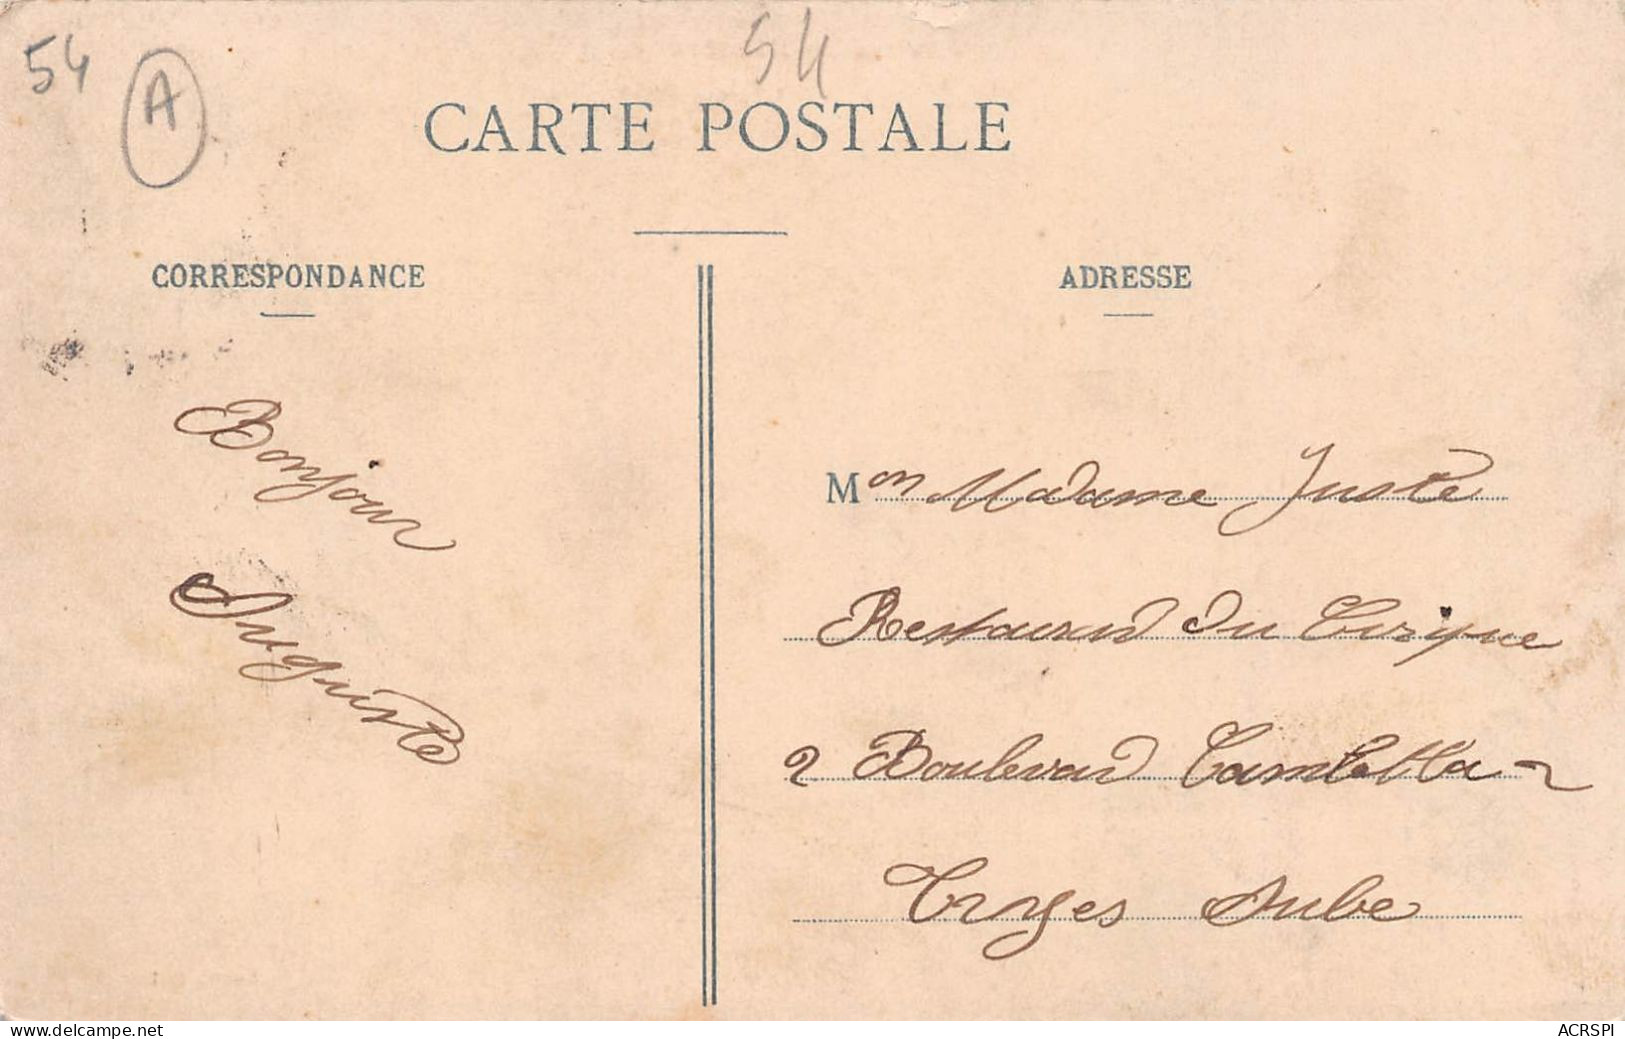 54
A
54
CARTE POSTALE
CORRESPONDANCE
Bonjour
Auguste
ADRESSE
Mon Madame Juste
Restaurand du Cirque
2 Boulevard Gambetta 2
Troyes Aube
www.delcampe.net
ACRSPI